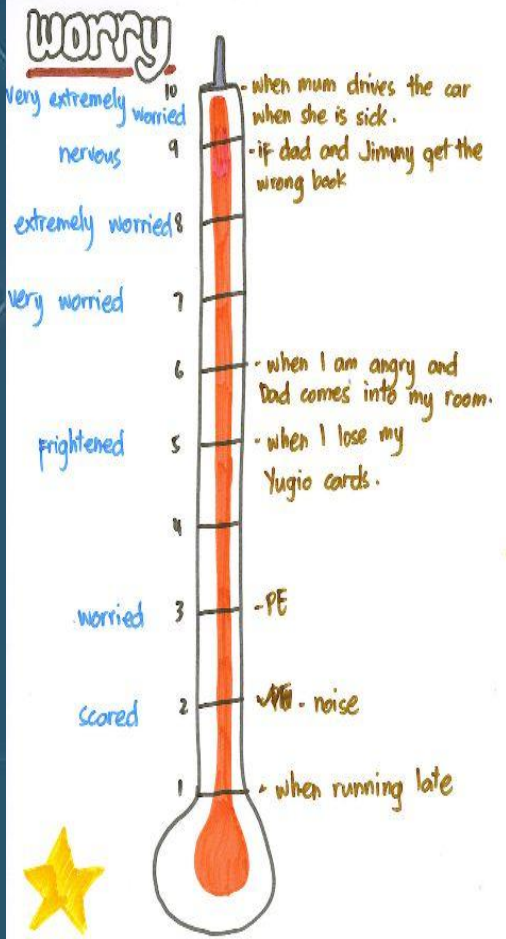 worry.
10
very extremely worried
- when mum drives the car
when she is sick.
nervous
9
- if dad and Jimmy get the
wrong book
extremely worried 8
very worried 7
6
- when I am angry and
Dad comes into my room.
frightened 5
- when I lose my
Yugio cards.
4
worried 3 - PE
scared 2 - noise
1 - when running late